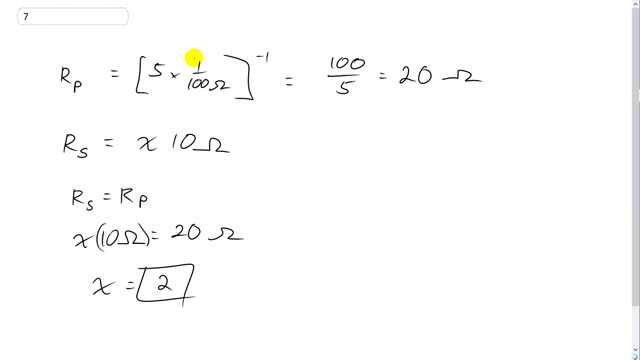 7
R_P = [5 × 1/100Ω]^-1 = 100/5 = 20 Ω
R_S = x 10Ω
R_S = R_P
x(10Ω) = 20 Ω
x = 2